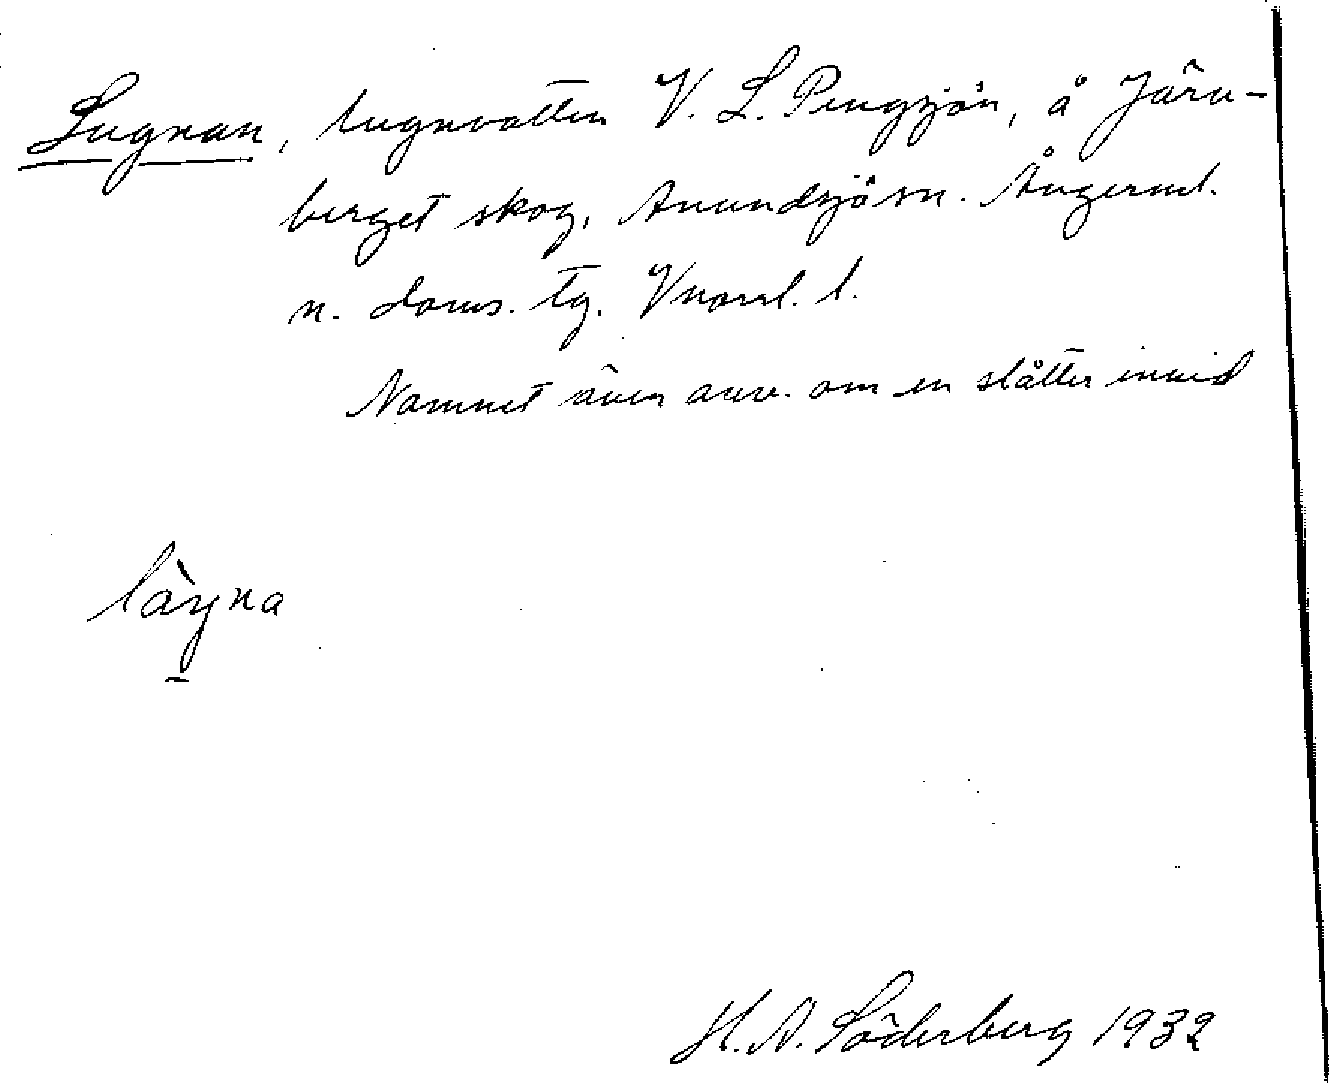 Lugnan, lugnvatten V. L. Pengsjön, å Järv-
berget skog, Anundsjö sn. Ångerml.
n. doms. tg. Vnorrl. l.
Namnet även anv. om en slåtter invid
låŋna
H.A. Söderberg 1932